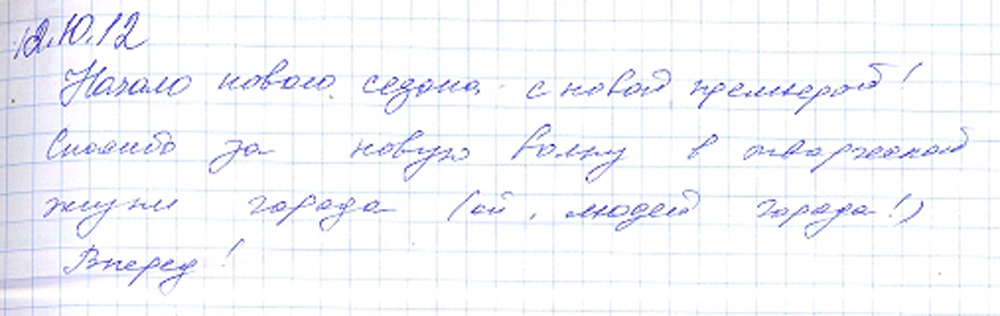 12.10.12
Начало нового сезона - с новой премьерой!
Спасибо за новую волну в творческой
жизни города (ой, людей города!)
Вперед!